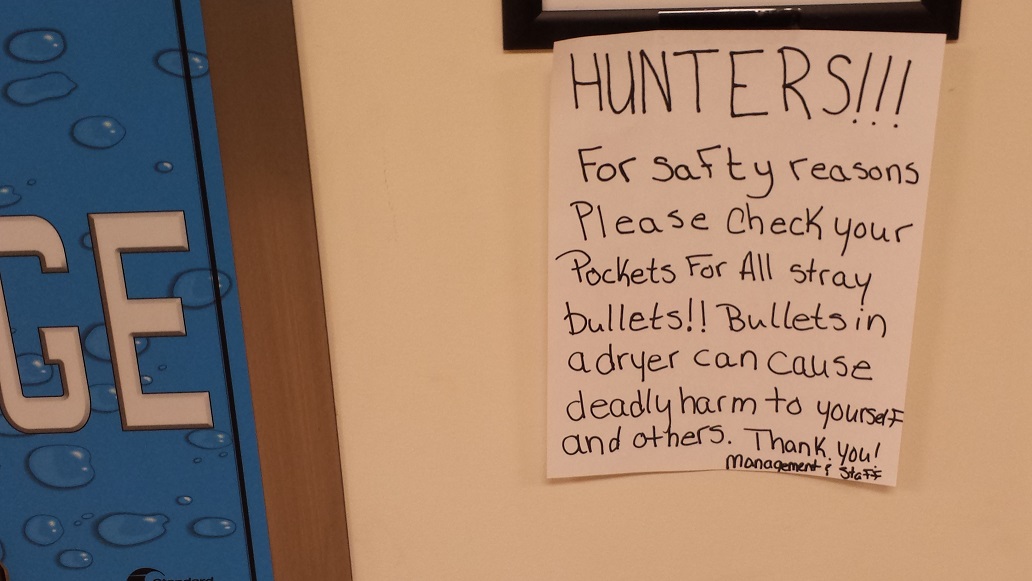 GE
Standard
HUNTERS!!!
For safty reasons
Please Check your
Pockets For All stray
bullets!! Bullets in
a dryer can cause
deadly harm to yourself
and others. Thank you!
Management & Staff